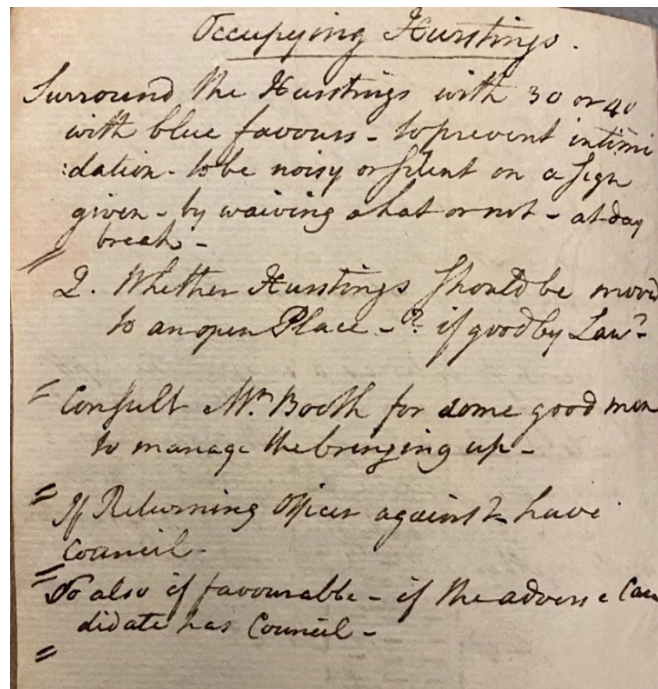 Occupying Husstings.
Surround the Husstings with 30 or 40
with blue favours - to prevent intimi
:dation - to be noisy or silent on a sign
given - by waiving a hat or not - at day
break -
2. Whether Husstings should be moved
to an open Place - Q? if good by Law?
Consult Mr. Booth for some good men
to manage the bringing up -
If Returning Officer against have
Council -
So also if favourable - if the adverse Can
didate has Council -